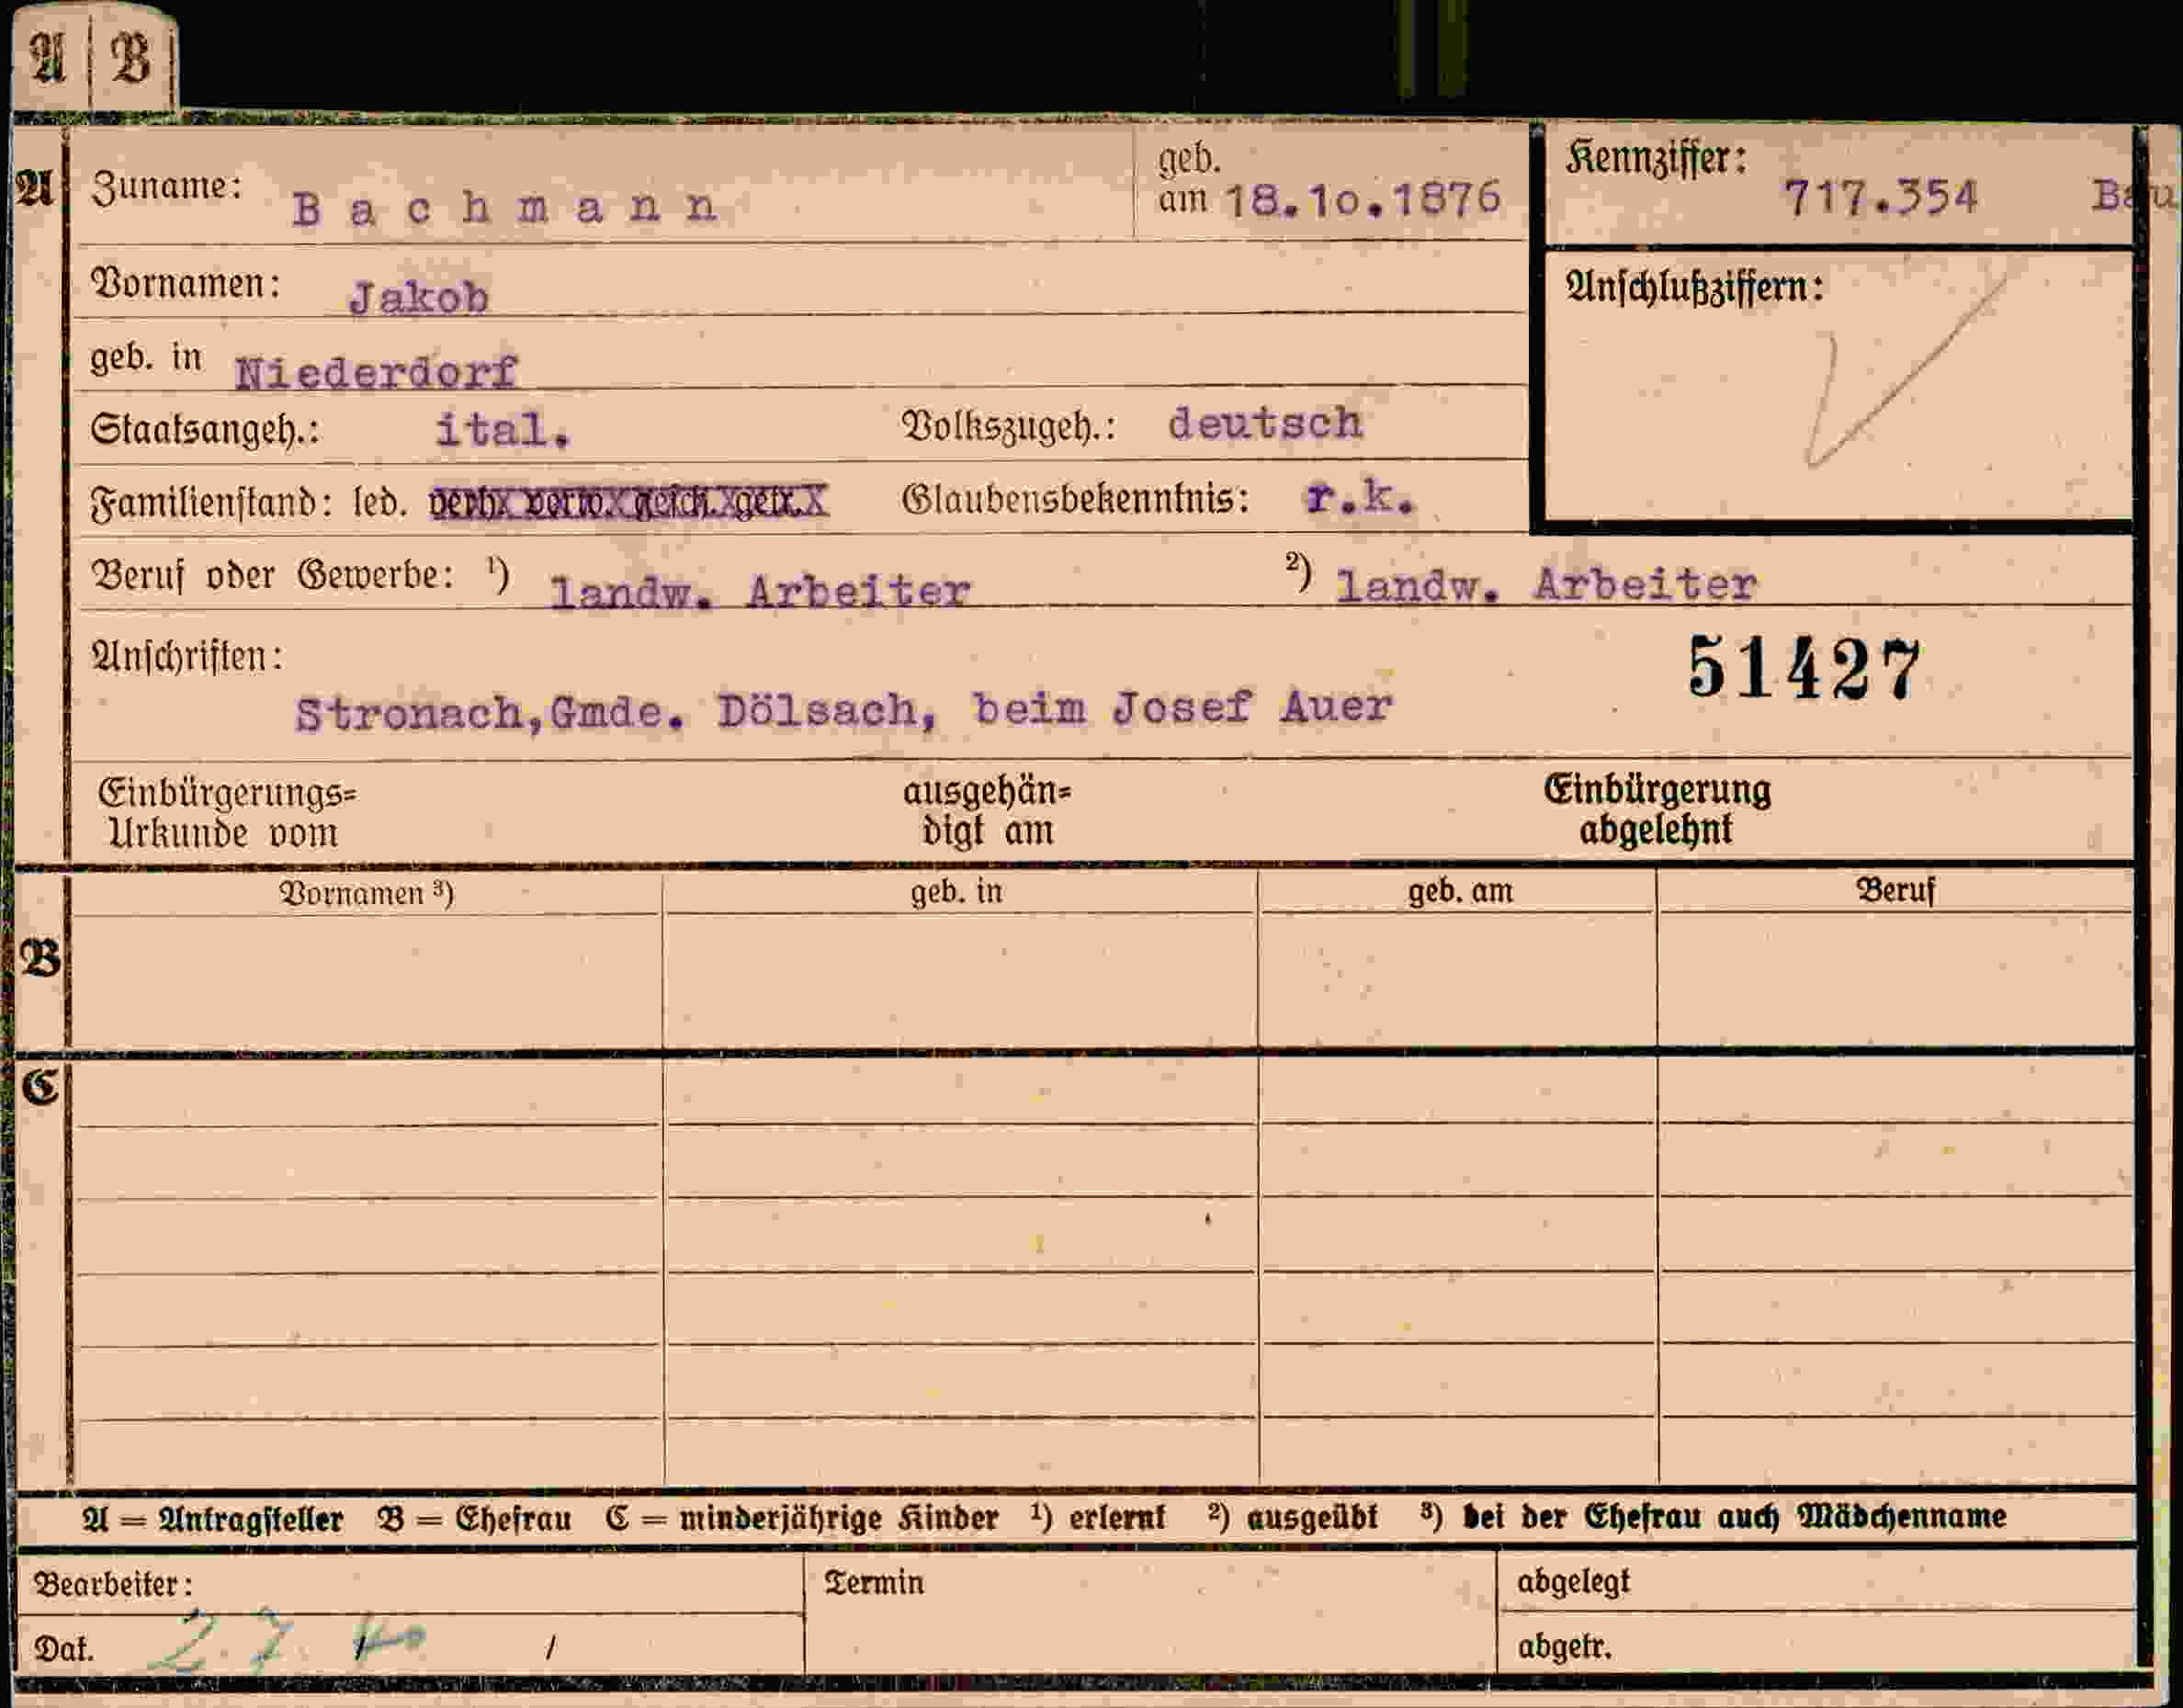 A B
A
Zuname: Bachmann
geb. am 18.10.1876
Kennziffer: 717.354 Bau
Vornamen: Jakob
Anschlußziffern:
geb. in Niederdorf
Staatsangeh.: ital. Volkszugeh.: deutsch
Familienstand: led. verh. verw. gesch. getr. Glaubensbekenntnis: r.k.
Beruf oder Gewerbe: ¹) landw. Arbeiter ²) landw. Arbeiter
Anschriften:
51427
Stronach,Gmde. Dölsach, beim Josef Auer
Einbürgerungs=
Urkunde vom
ausgehän=
digt am
Einbürgerung
abgelehnt
B
Vornamen ³) geb. in geb. am Beruf
C
A = Antragsteller B = Ehefrau C = minderjährige Kinder ¹) erlernt ²) ausgeübt ³) bei der Ehefrau auch Mädchenname
Bearbeiter: Termin abgelegt
Dat. 2.7. 40 / abgetr.